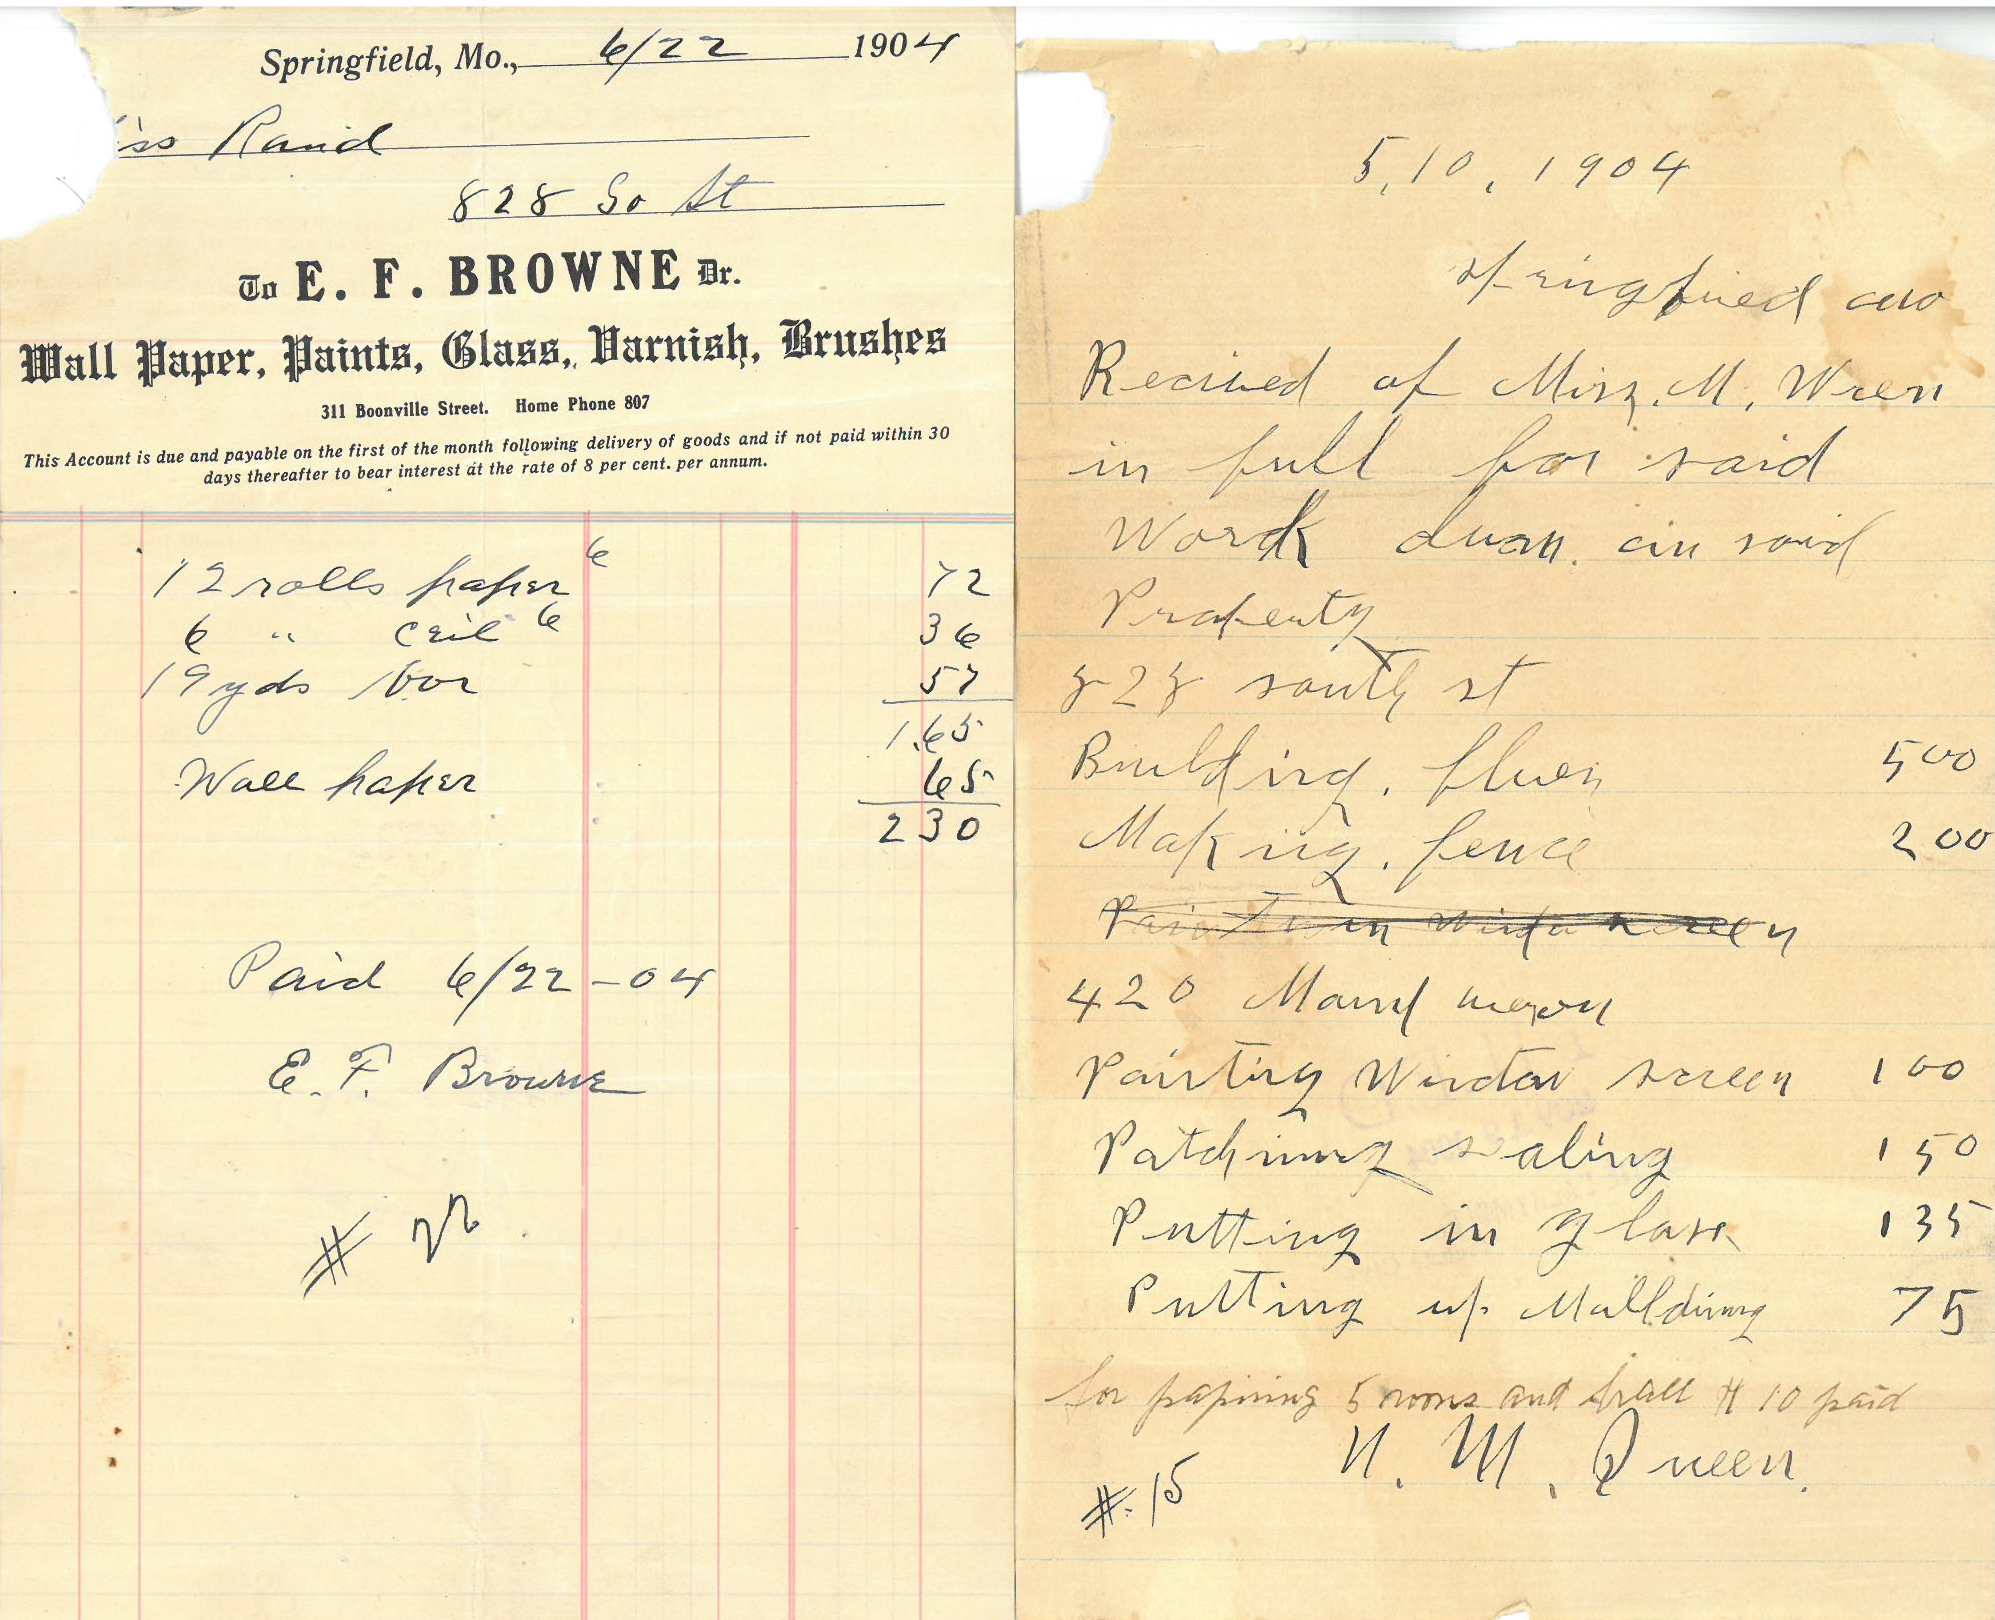 Springfield, Mo., 6/22 1904
iss Rand
828 So St
To E. F. BROWNE Dr.
Wall Paper, Paints, Glass, Varnish, Brushes
311 Boonville Street. Home Phone 807
This Account is due and payable on the first of the month following delivery of goods and if not paid within 30
days thereafter to bear interest at the rate of 8 per cent. per annum.
12 rolls paper 6 72
6 " ceil 6 36
19 yds bor 57
1.65
Wall paper 65
230
Paid 6/22-04
E. F. Browne
# 22
5,10, 1904
Recived of Miss. M. Wren
in full for said
Work duan. on said
Property
828 south st
Building. flues 500
Making. fence 200
420
Painting Window screen 100
Patching sealing 150
Putting in glass 135
Putting up Mallding 75
for papiring 5 rooms and hall # 10 paid
N. M. Queen.
#15